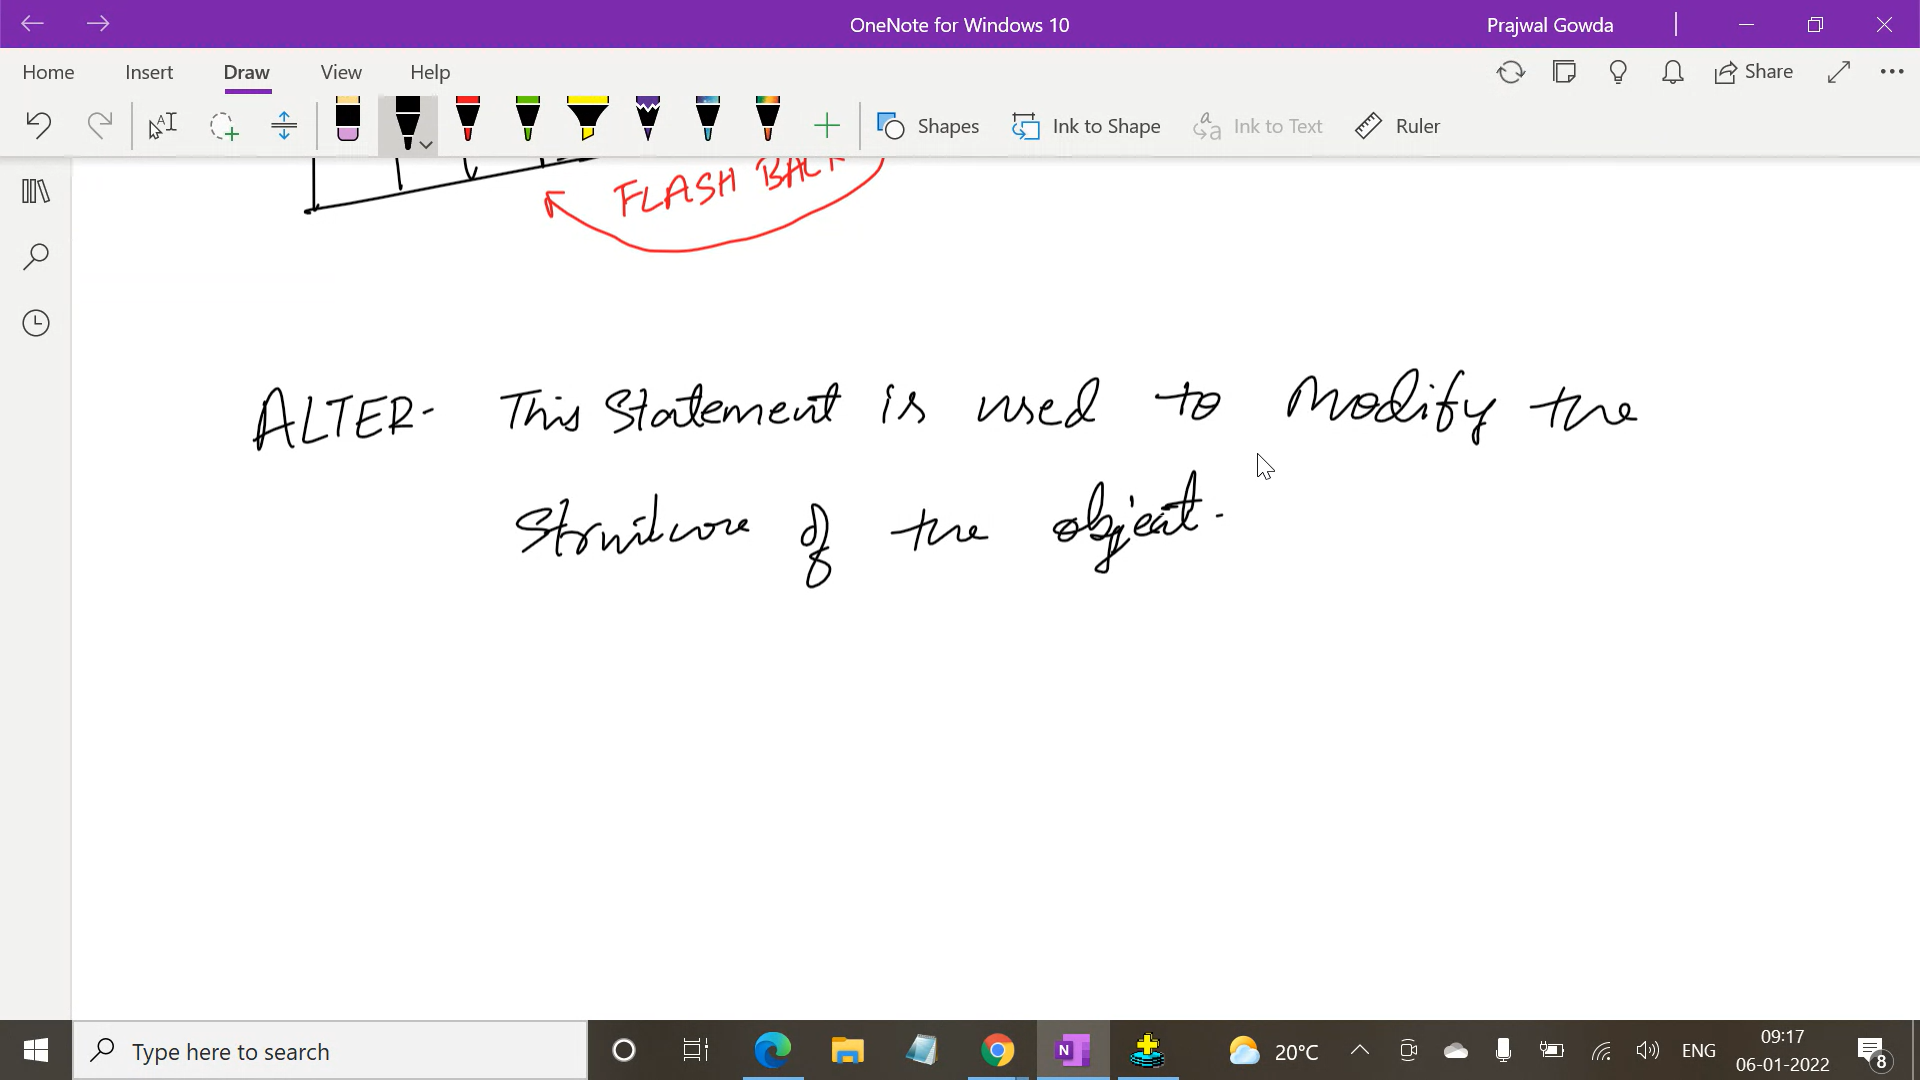 OneNote for Windows 10
Prajwal Gowda
Home Insert Draw View Help
Share
Shapes Ink to Shape Ink to Text Ruler
FLASH BACK
ALTER- This Statement is used to Modify the
Structure of the object.
Type here to search
20°C
ENG
09:17
06-01-2022
8